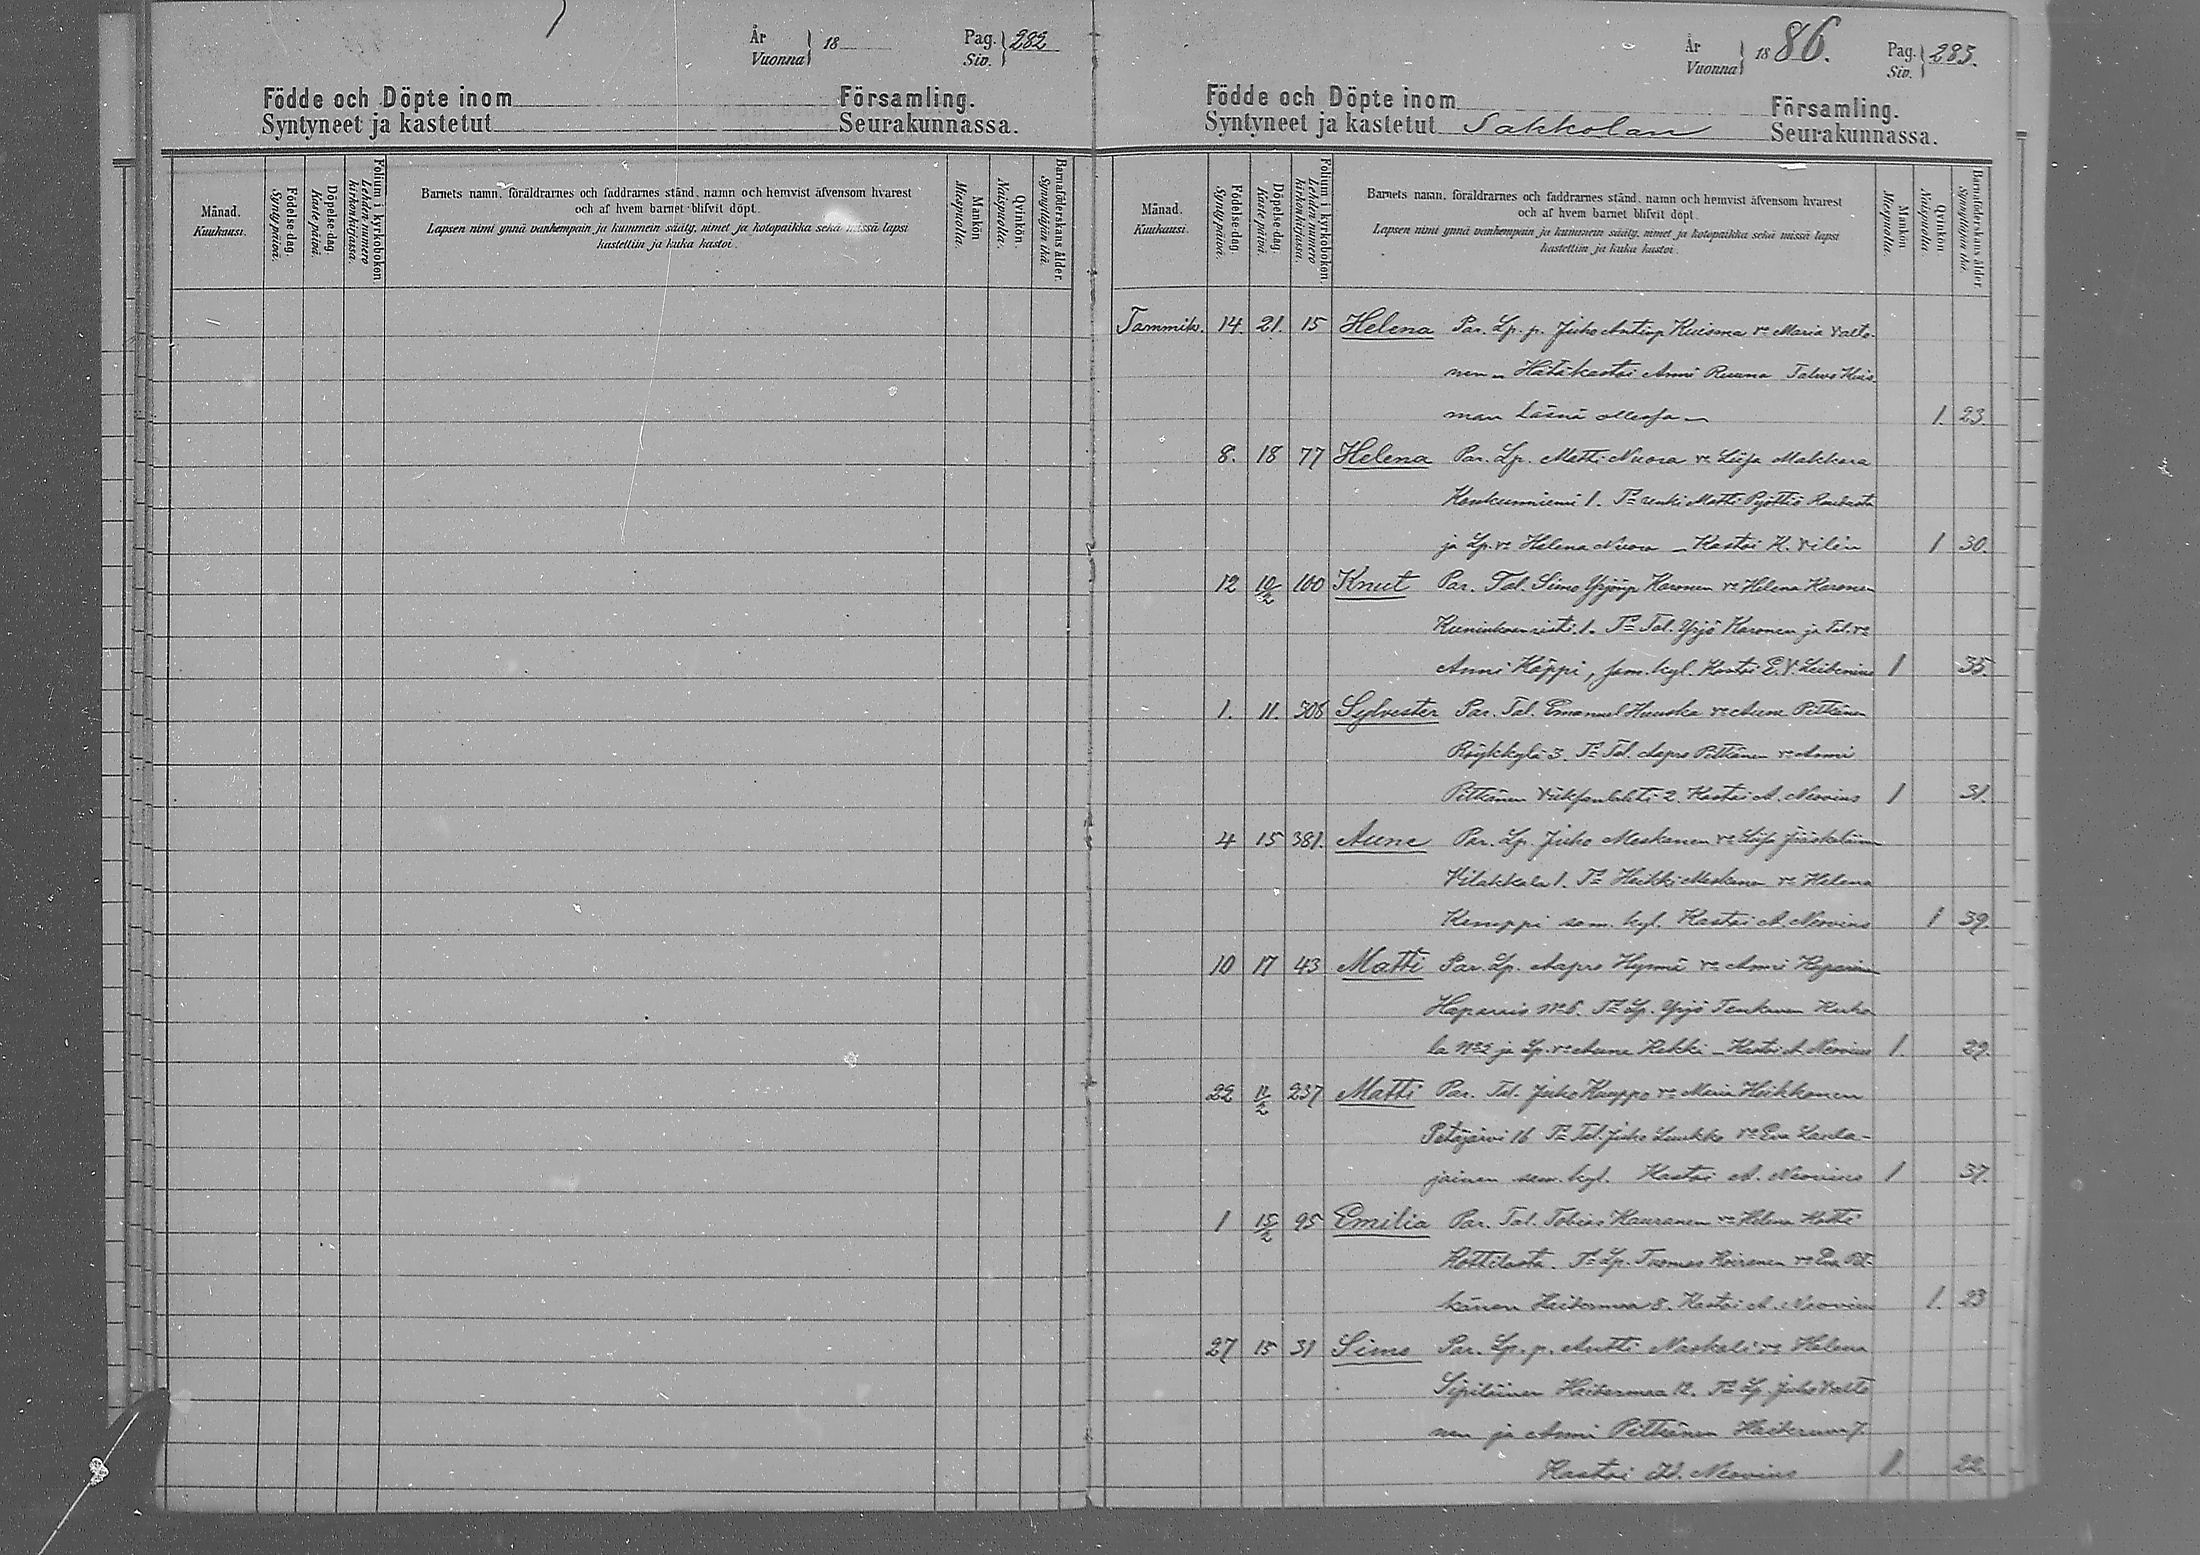 År
Vuonna } 18
Pag.
Siv. } 282
Födde och Döpte inom Församling.
Syntyneet ja kastetut Seurakunnassa.
Månad.
Kuukausi.
Födelse-dag.
Syntypäivä.
Döpelse-dag.
Kastepäivä.
Folium i kyrkoboken.
Lehden numero kirkonkirjassa.
Barnets namn, föräldrarnes och faddrarnes stånd, namn och hemvist äfvensom hvarest
och af hvem barnet blifvit döpt.
Lapsen nimi ynnä vanhempain ja kummein sääty, nimet ja kotopaikka sekä missä lapsi
kastettiin ja kuka kastoi.
Mankön
Miespuolia.
Qvinkön.
Naispuolia.
Barnaföderskans ålder.
Synnyttäjän ikä.
År
Vuonna } 1886.
Pag.
Siv. } 283.
Födde och Döpte inom Församling.
Syntyneet ja kastetut Sakkolan Seurakunnassa.
Månad.
Kuukausi.
Födelse-dag.
Syntypäivä.
Döpelse-dag.
Kastepäivä.
Folium i kyrkoboken.
Lehden numero kirkonkirjassa.
Barnets namn, föräldrarnes och faddrarnes stånd, namn och hemvist äfvensom hvarest
och af hvem barnet blifvit döpt.
Lapsen nimi ynnä vanhempain ja kummein sääty, nimet ja kotopaikka sekä missä lapsi
kastettiin ja kuka kastoi.
Mankön
Miespuolia.
Qvinkön.
Naispuolia.
Barnaföderskans ålder.
Synnyttäjän ikä.
Tammik. 14. 21. 15 Helena Par. Lp. p. Juho Antinp Kuisma vo Maria Valto-
nen – Hätäkastoi Anni Ruuna Talous Kuis
man läsnä ollessa – 1. 23.
8. 18 77 Helena Par. Lp. Matti Nuora vo Liisa Makkara
1. To renki Matti
ja Lp. vo Helena Nuora – Kastoi K. Vilén 1 30.
12 10/2 100 Knut Par. Tal. Simo Yrjönp Karonen vo Helena Karonen
1. To Tal. Yrjö Karonen ja Tal. vo
Anni Käppi, sam. kyl. Kastoi E.V. 1 35.
1. 11. 306 Sylvester Par. Tal. Emanuel vo Anna Pitkänen
Röykkylä 3. To Tal. Aapro Pitkänen vo Anni
Pitkänen 2. Kastoi A. Neovius 1 31.
4 15 381. Aune Par. Lp. Juho Meskanen vo Liisa Jääskeläinen
Vilakkala 1. To Heikki Meskanen vo Helena
Kemppi sam. kyl. Kastoi A. Neovius 1 39.
10 17 43 Matti Par. Lp. Aapro Hynnä vo Anni
Haparais No 6. To Lp. Yrjö Tenkanen
la No 2 ja Lp. vo Anna – Kastoi A. Neovius 1. 29.
22 12/2 237 Matti Par. Tal. Juho Kauppo vo Maria Heikkonen
Petäjärvi 16 To Tal. Juho Luukko vo Eva
jainen sam. kyl. Kastoi A. Neovius 1 37.
1 15/2 95 Emilia Par. Tal. Tobias Hauranen vo Helena Hotti
To Lp. Tuomas vo Eva Pit-
känen Haitermaa 8. Kastoi A. Neovius 1. 23
27 15 31 Simo Par. Lp. p. Antti Naskali vo Helena
Sipiläinen Haitermaa 12. To Lp. Juho Valto
nen ja Anni Pitkänen Haitermaa 7.
Kastoi A. Neovius 1. 22.